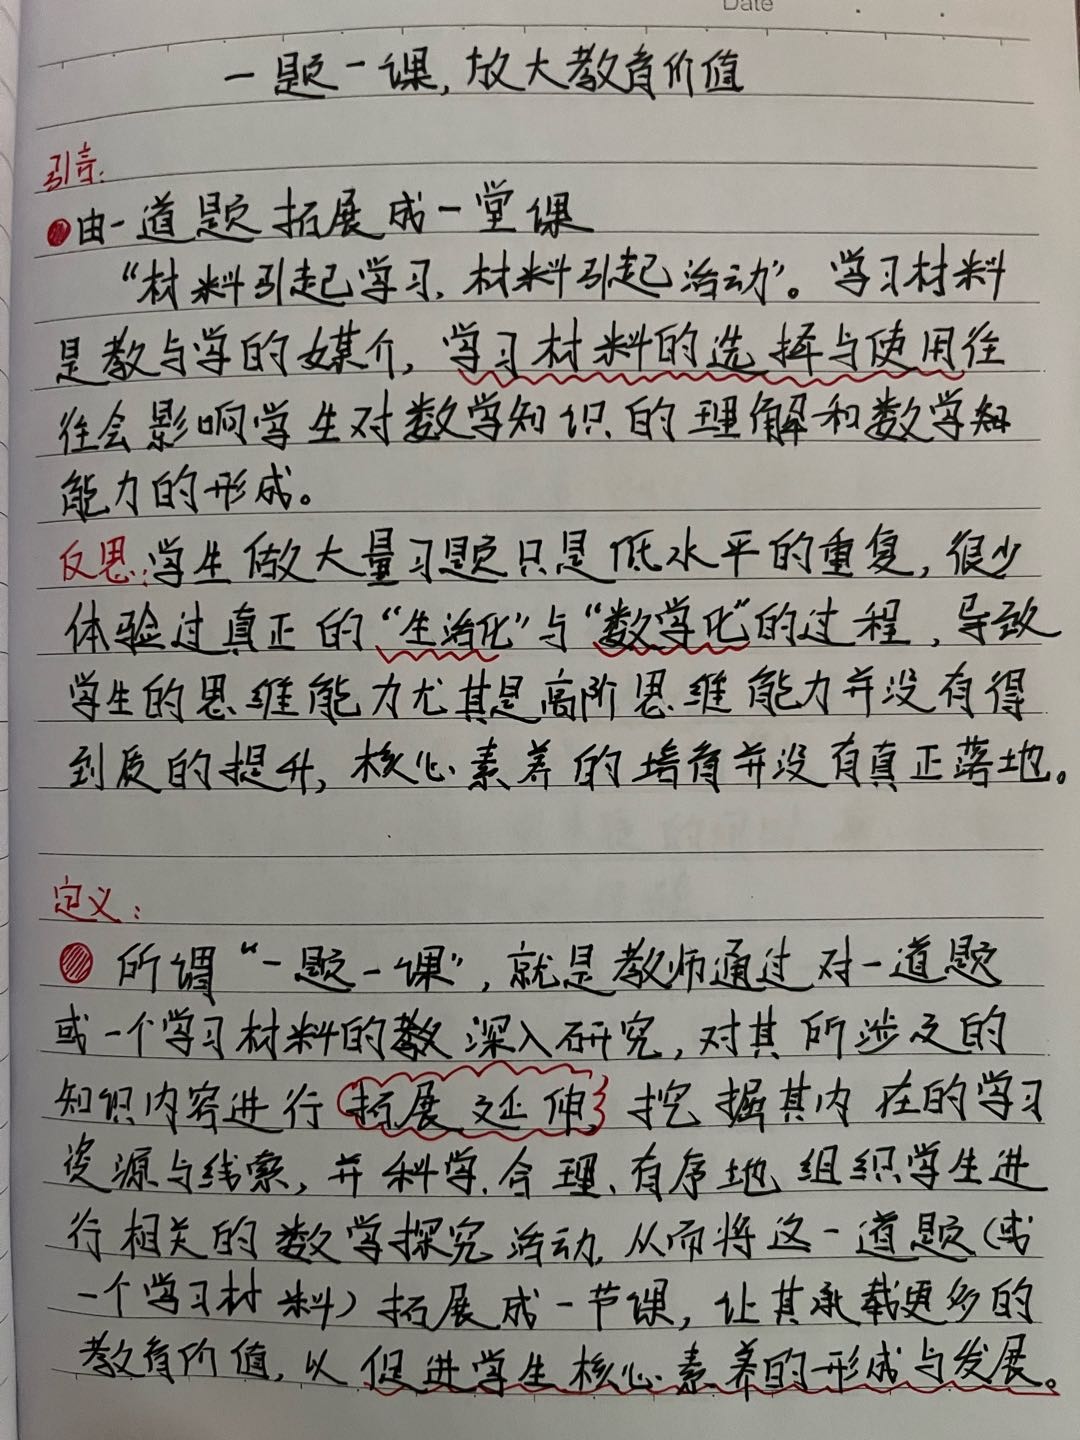 Date
一题一课,放大教育价值
引言:
由一道题拓展成一堂课
“材料引起学习,材料引起活动”。学习材料
是教与学的媒介,学习材料的选择与使用往
往会影响学生对数学知识的理解和数学知
能力的形成。
反思:学生做大量习题只是低水平的重复,很少
体验过真正的“生活化”与“数学化”的过程,导致
学生的思维能力尤其是高阶思维能力并没有得
到质的提升,核心素养的培育并没有真正落地。
定义:
所谓“一题一课”,就是教师通过对一道题
或一个学习材料的教深入研究,对其所涉及的
知识内容进行拓展延伸,挖掘其内在的学习
资源与线索,并科学、合理、有序地组织学生进
行相关的数学探究活动,从而将这一道题(或
一个学习材料)拓展成一节课,让其承载更多的
教育价值,以促进学生核心素养的形成与发展。